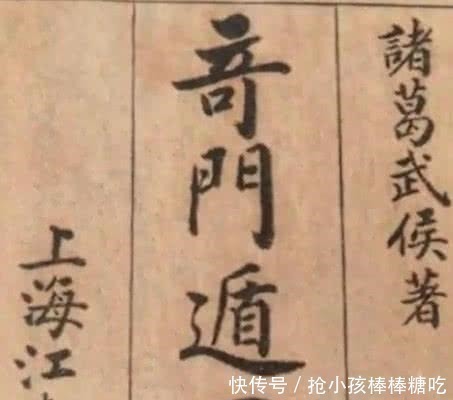 諸葛武侯著
奇門遁
上海江
快传号/抢小孩棒棒糖吃